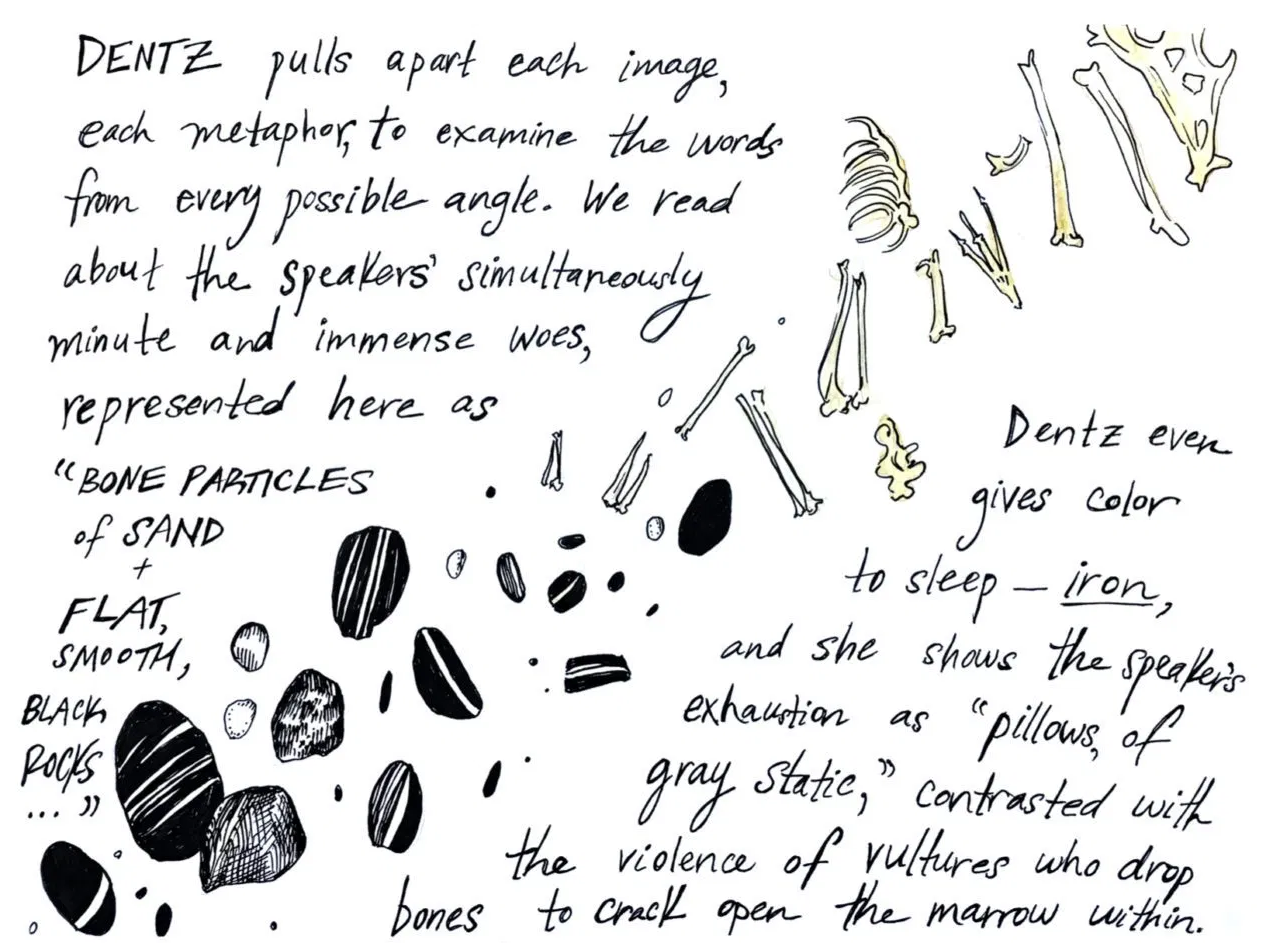 DENTZ pulls apart each image,
each metaphor, to examine the words
from every possible angle. We read
about the speakers' simultaneously
minute and immense woes,
represented here as
"BONE PARTICLES
of SAND
+
FLAT,
SMOOTH,
BLACK
ROCKS
..."
Dentz even
gives color
to sleep — iron,
and she shows the speaker's
exhaustion as "pillows, of
gray static," contrasted with
the violence of vultures who drop
bones to crack open the marrow within.